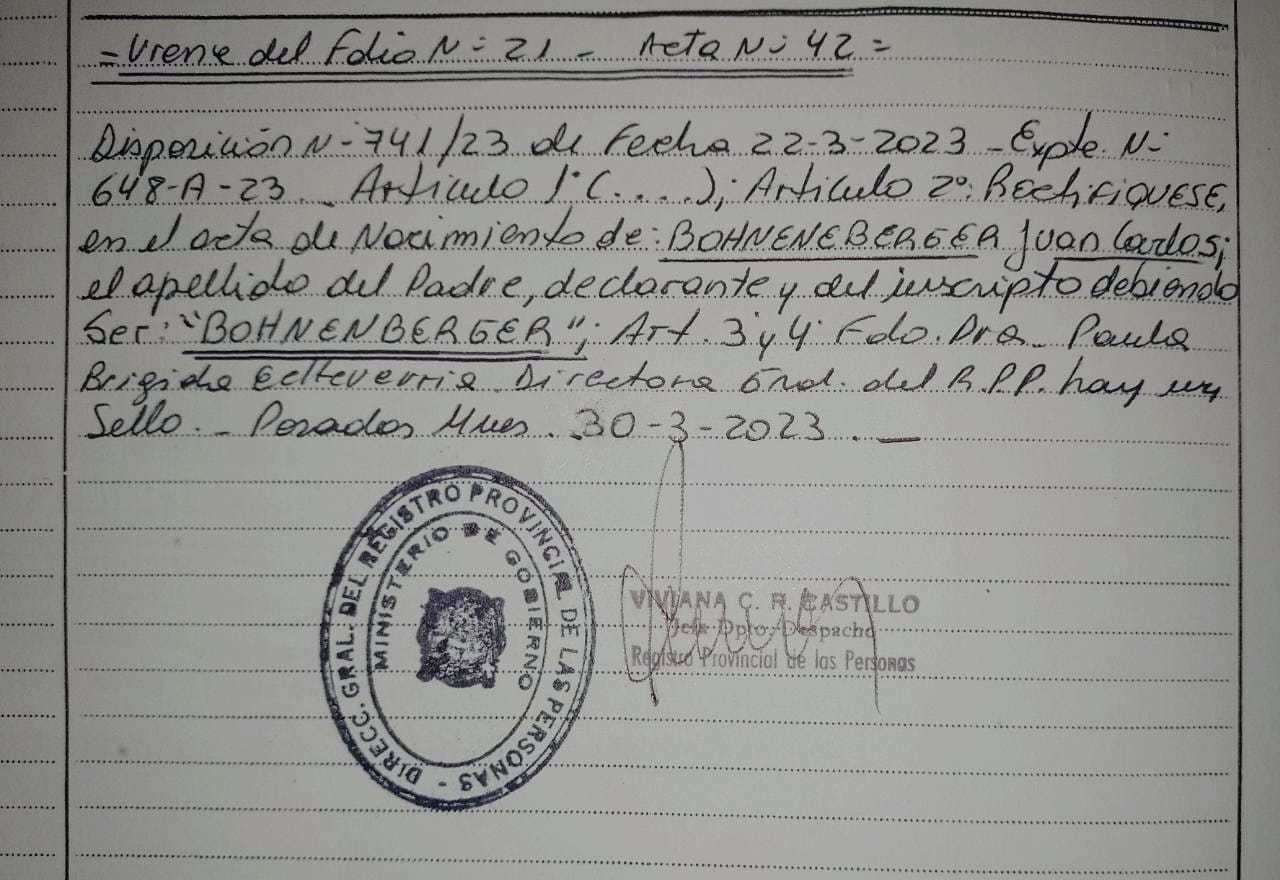 =Viene del Folio N= 21 - Acta N= 42=
Disposición N-741/23 de Fecha 22-3-2023 - Expte. N-
648-A-23 _ Articulo 1°(....); Articulo 2°: RectiFIQUESE,
en el acta de Nacimiento de: BOHNENEBERGER Juan Carlos;
el apellido del Padre, declarante y del inscripto debiendo
Ser: "BOHNENBERGER"; Art. 3 y 4 Fdo. Dra. Paula
Brigida Echeverria Directora Gral. del R.P.P. hay un
Sello. - Posadas Mnes. 30-3-2023. —
DIRECC. GRAL. DEL REGISTRO PROVINCIAL DE LAS PERSONAS -
MINISTERIO DE GOBIERNO
VIVIANA C. R. CASTILLO
Jefe Dpto. Despacho
Registro Provincial de las Personas